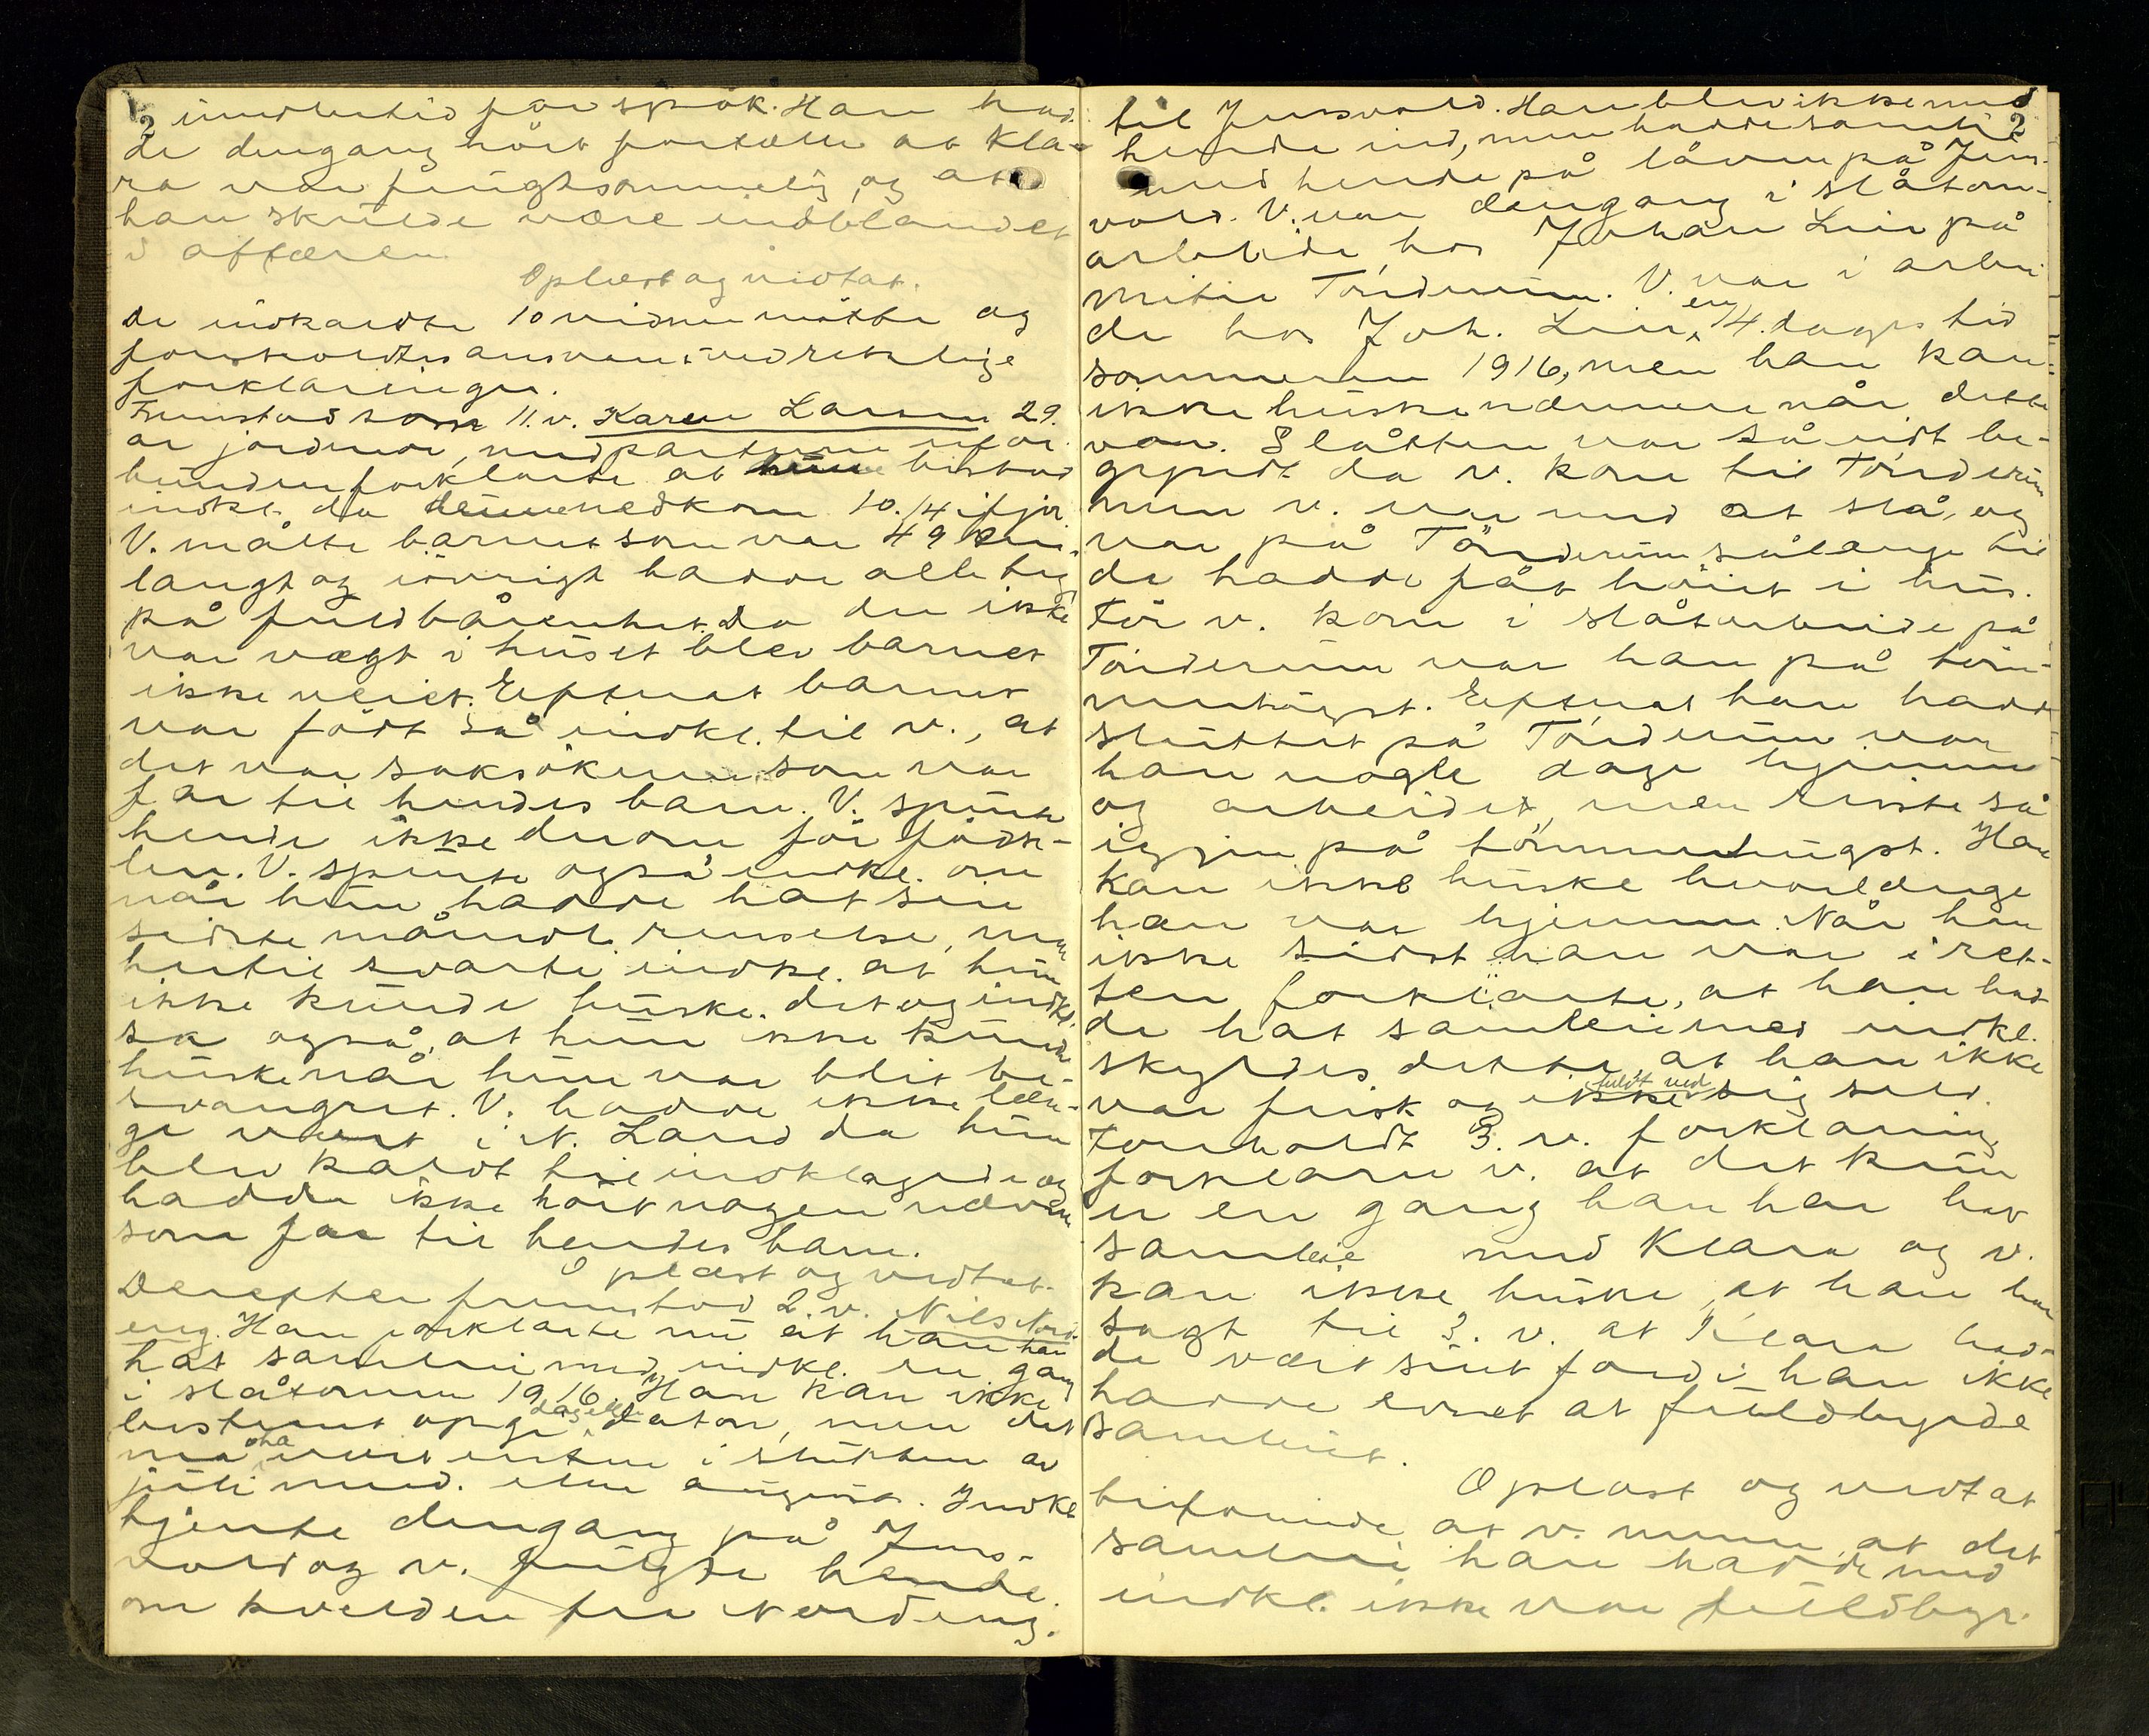 2 imidlertid for spøk. Han had-
de dengang hørt fortælle at Kla-
ra var frugtsommelig, og at
han skulde være indblandet
i affæren.
Oplæst og vedtat.
De indkaldte 10 vidner møtte og
foreholdtes ansvar ved retslige
forklaringer.
Fremstod som 11. v. Karen Larsen 29.
år jordmor, med parterne ufor-
bunden forklarte at hun bistod
indkl. da denne nedkom 10./4 ifjor.
V. målte barnet som var 49 cm.
langt og iøvrigt hadde alle tegn
på fuldbårenhet. Da der ikke
var vægt i huset blev barnet
ikke veiet. Efterat barnet
var født sa indkl. til v., at
det var saksøkeren som var
far til hendes barn. V. spurte
hende ikke derom før føds-
len. V. spurte også indkl. om
når hun hadde hat sin
sidste månedl. renselse, men
hertil svarte indkl. at hun
ikke kunde huske det og indkl.
sa også, at hun ikke kunde
huske når hun var blit be-
svangret. V. hadde ikke læn-
ge været i N. Land da hun
blev kaldt til indklagede og
hadde ikke hørt nogen nævnt
som far til hendes barn.
Oplæst og vedtat.
Derefter fremstod 2. v. Nils Nord-
eng. Han forklarte nu at han har
hat samleie med indkl. en gang
i slåtonnen 1916. Han kan ikke
bestemt opgi dag eller daton, men det
må ha været enten i slutten av
juli mnd. eller august. Indkl.
tjente dengang på Jens-
vold og v. fulgte hende
om kvelden fra Nordeng
2
til Jensvold. Han blev ikke med
hende ind, men hadde samleie
med hende på låven på Jens-
vold. V. var dengang i slåton-
arbeide hos Johan Lien på
Tönderum. V. var i arbei-
de hos Joh. Lien en 14. dages tid
sommeren 1916, men han kan
ikke huske nærmere når dette
var. Slåtten var så vidt be-
gyndt da v. kom til Tönderum
men v. var med at slå, og
var på Tönderum sålænge til
de hadde fåt høiet i hus.
Før v. kom i slåtarbeide på
Tönderum var han på tøm-
merhugst. Efterat han hadde
sluttet på Tönderum var
han nogle dage hjemme
og arbeidet, men reiste så
igjen på tømmerhugst. Han
kan ikke huske hvorlænge
han var hjemme. Når han
ikke sidst han var i ret-
ten forklarte, at han had-
de hat samleie med indkl.
skyldes dette at han ikke
var frisk og ikke fuldt ved sig selv.
Foreholdt 3. v. forklaring
forklarer v. at det kun
er en gang han har hat
samleie med Klara og v.
kan ikke huske, at han har
sagt til 3. v. at Klara had-
de vært sint fordi han ikke
hadde evnet at fuldbyrde
samleiet.
Oplæst og vedtat
tilføiende at v. mener, at det
samleie han hadde med
indkl. ikke var fuldbyr-